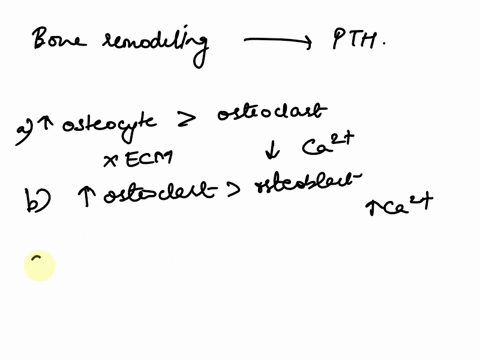 Bone remodeling → PTH.
a) ↑ osteocyte > osteoclast
x ECM ↓ Ca2+
b) ↑ osteoclast > osteoblast
↑ Ca2+